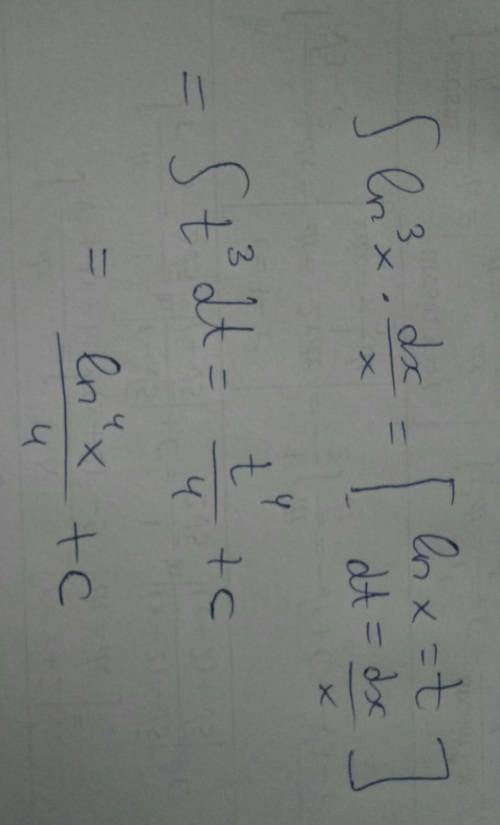 ∫ ln³x · dx/x = [ ln x = t   dt = dx/x ]
= ∫ t³ dt = t⁴/4 + c
= ln⁴x/4 + c